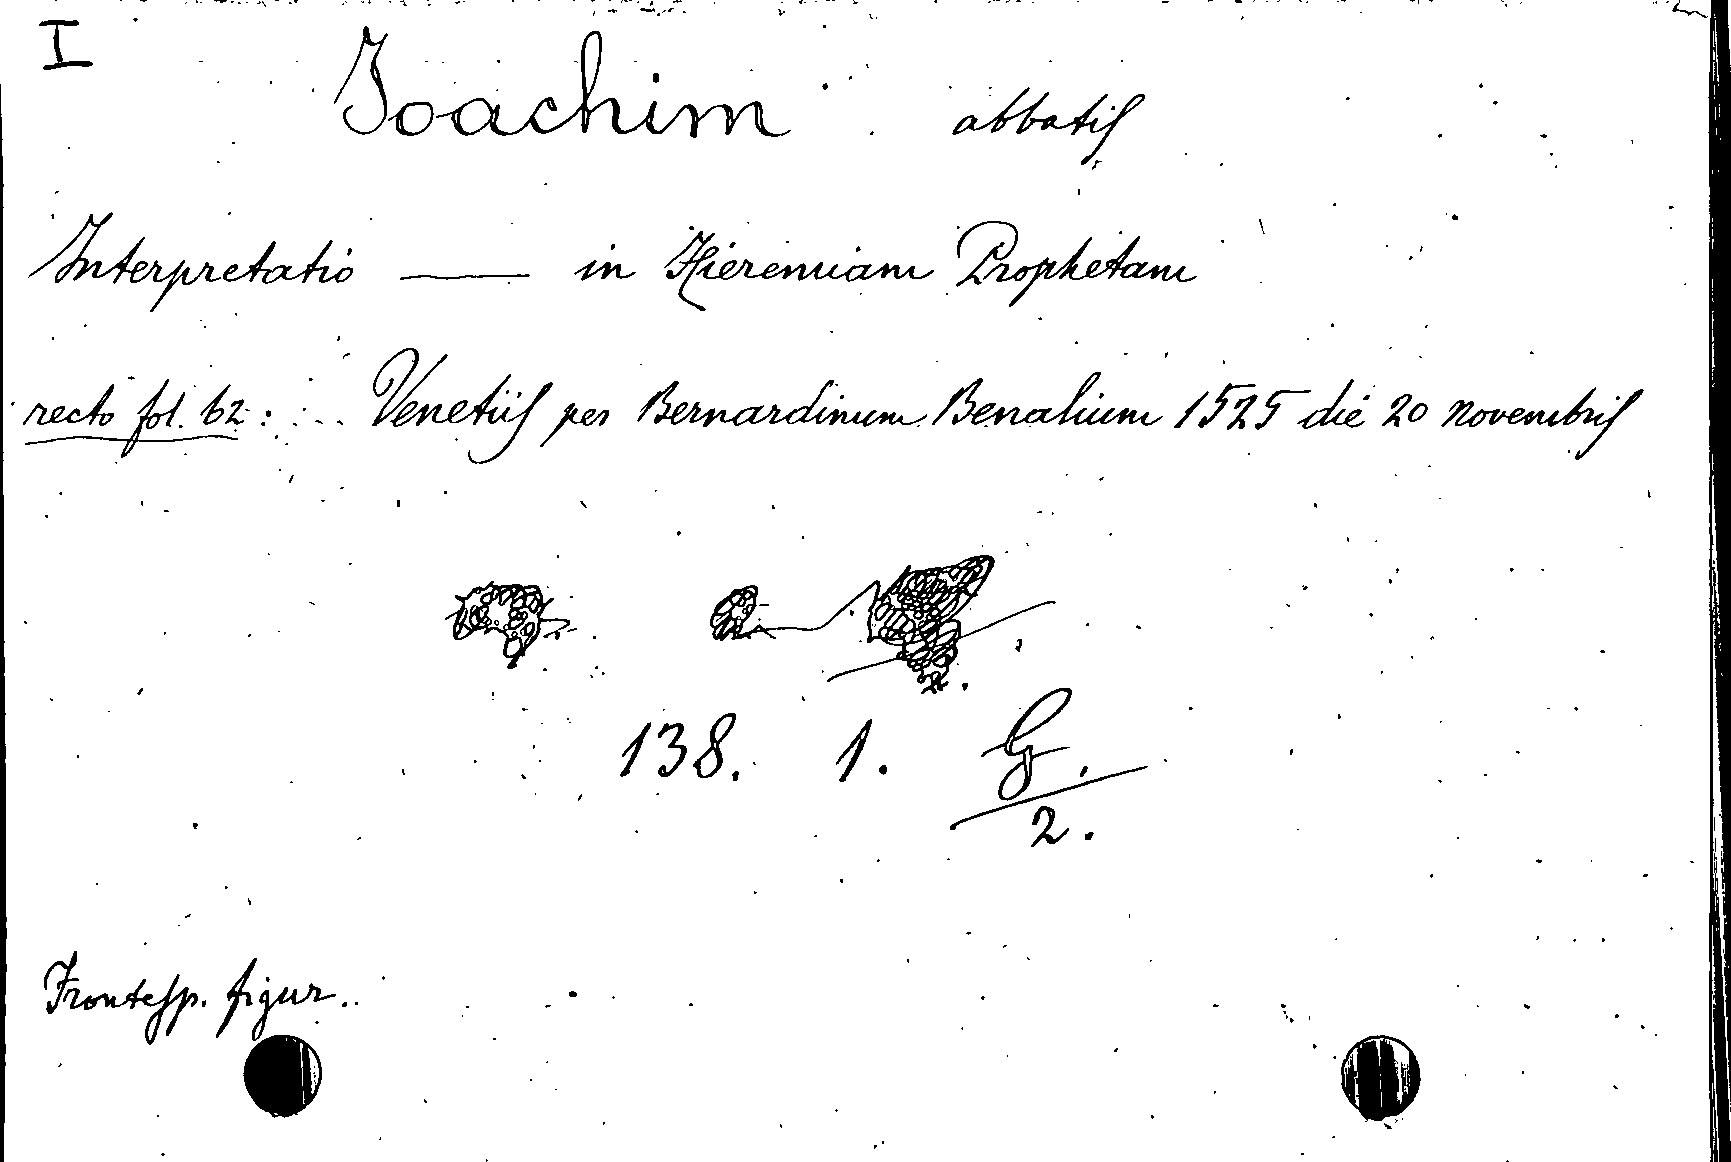 I
Joachim abbatis
Interpretatio — in Hieremiam Prophetam
recto fol. 62: Venetiis per Bernardinum Benalium 1525 die 20 novembris
138. 1. G.
2.
Frontesp. figur.